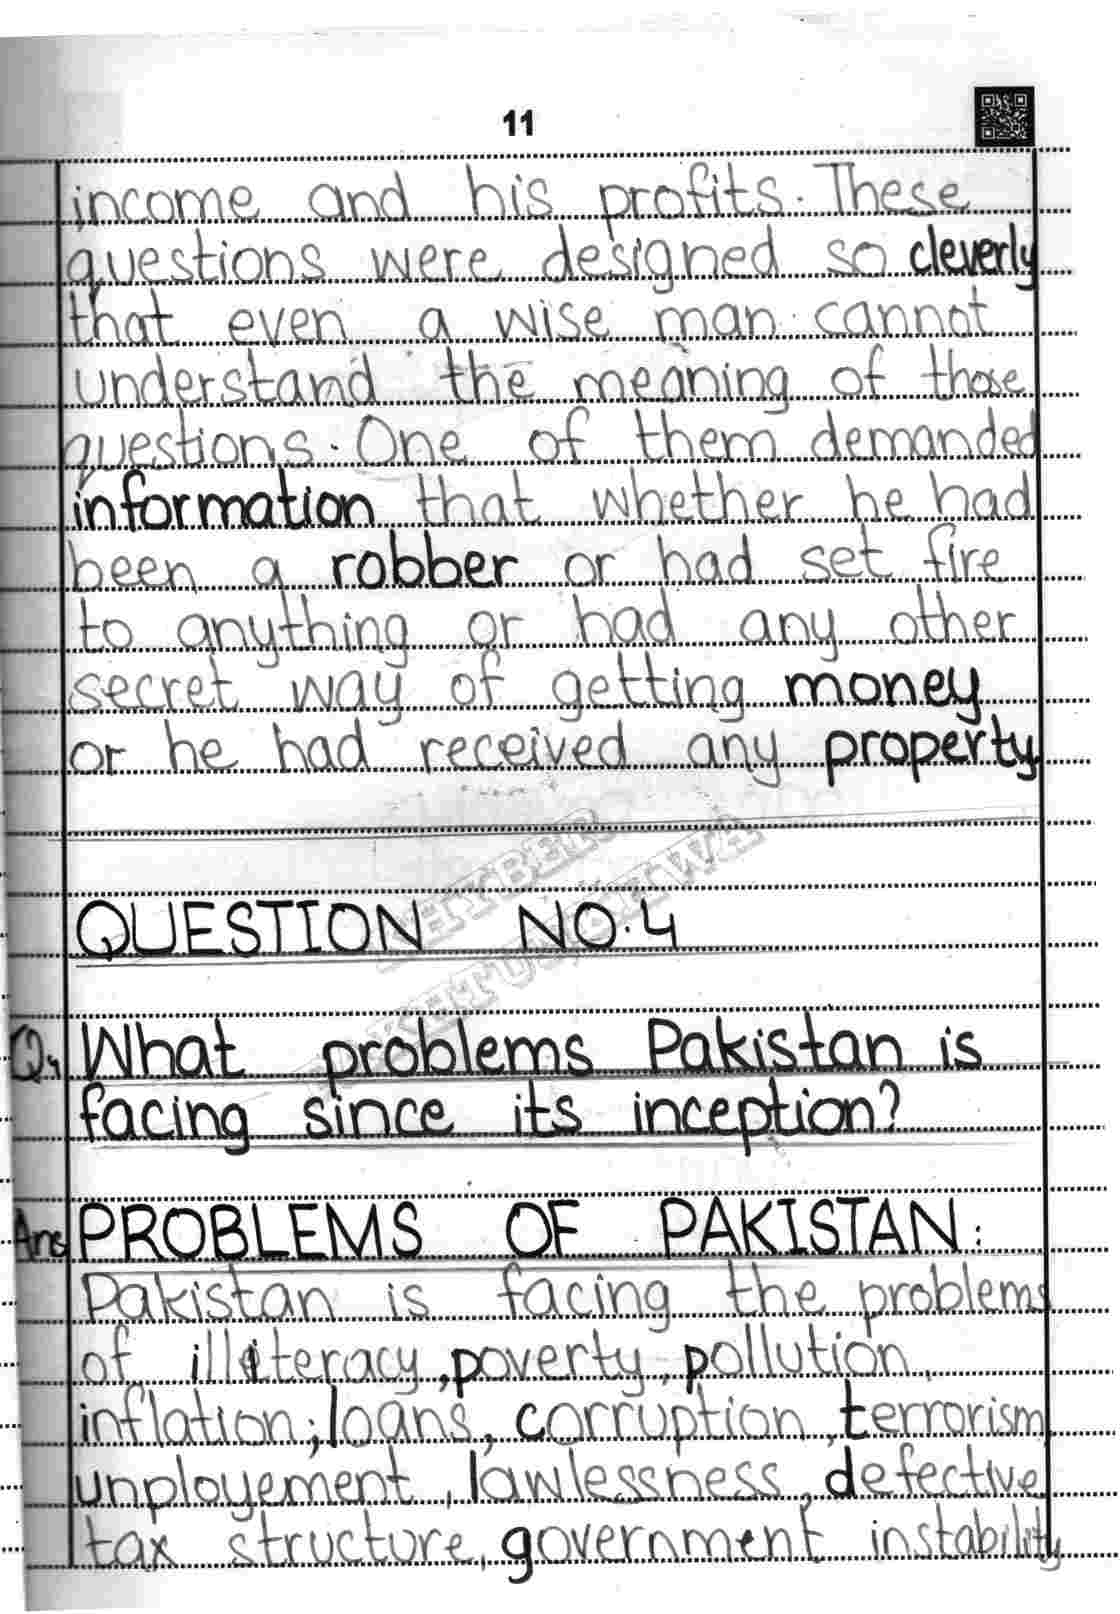 11
income and his profits. These
questions were designed so cleverly
that even a wise man cannot
understand the meaning of those
questions. One of them demanded
information that whether he had
been a robber or had set fire
to anything or had any other
secret way of getting money
or he had received any property
QUESTION NO.4
Q4 What problems Pakistan is
facing since its inception?
Ans PROBLEMS OF PAKISTAN:
Pakistan is facing the problems
of illiteracy, poverty, pollution,
inflation, loans, corruption, terrorism
unployement, lawlessness, defective
tax structure, government instability